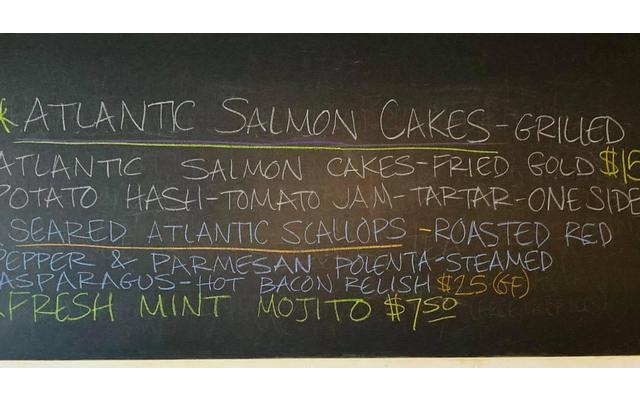 * ATLANTIC SALMON CAKES-GRILLED
ATLANTIC SALMON CAKES-FRIED GOLD $15
POTATO HASH-TOMATO JAM-TARTAR-ONE SIDE
SEARED ATLANTIC SCALLOPS -ROASTED RED
PEPPER & PARMESAN POLENTA-STEAMED
ASPARAGUS-HOT BACON RELISH $25 (GF)
FRESH MINT MOJITO $7.50